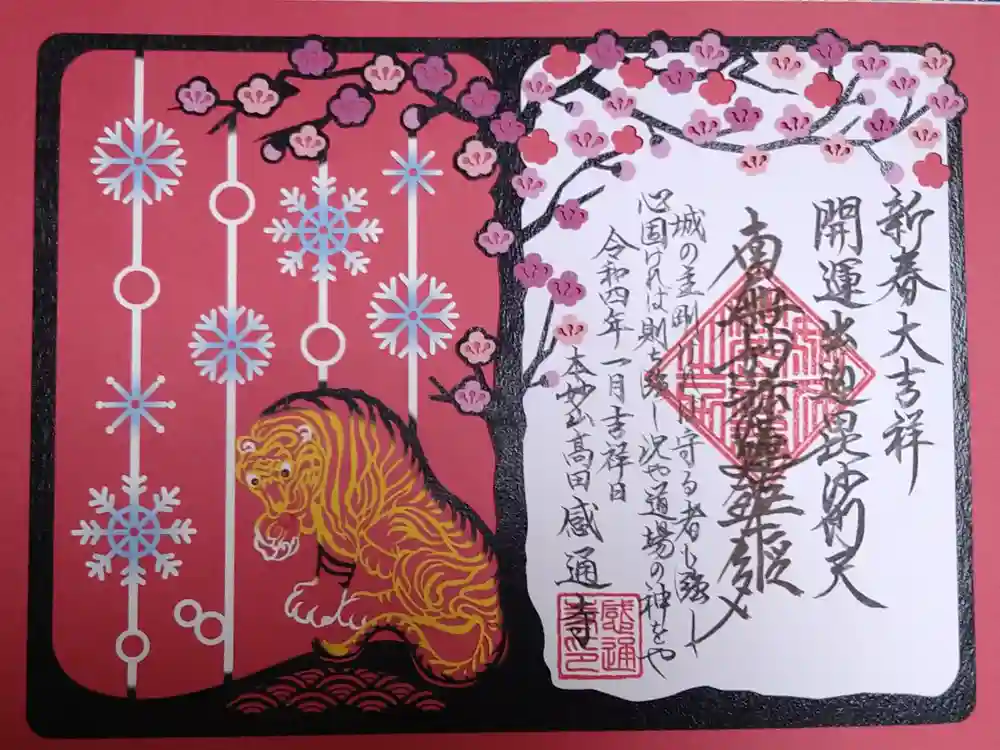 新春大吉祥
開運出迎毘沙門天
南無妙法蓮華経
城の主剛ければ守る者も強し
心固ければ則ち強し況や道場の神をや
令和四年一月吉祥日
本妙山高田感通寺
感通寺印